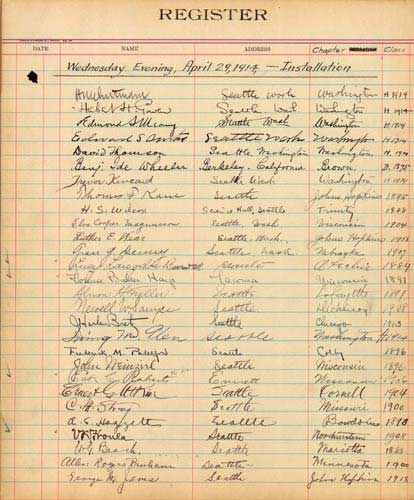 REGISTER
DATE NAME ADDRESS Chapter Class
Wednesday Evening, April 29, 1914, — Installation
Seattle Wash Washington H 1914
Herbert H. Gowen Seattle Wash Washington H 1914
Edmond S Meany Seattle Wash Washington
Edward S Seattle Wash Washington
David Thomson Seattle, Washington Washington H. 1914
Benj. Ide Wheeler Berkeley, California Brown B. 1875
Trevor Kincaid Seattle Wash Washington
Thomas F. Kane Seattle Johns Hopkins 1895
H. S. Wilson Seattle Trinity 1908
Elias Cooper Magnusson Seattle, Wash. Wisconsin 1904
Luther E. Wear Seattle, Wash., Johns Hopkins 1911
Grace G. Denny Seattle Wash. Nebraska 1907
Seattle 1884
Florence Tacoma Wisconsin 1891
Seattle Lafayette 1891
Seattle Michigan
Seattle Chicago 1913
Irving M. Glen Seattle Washington
Frederick M. Padelford Seattle Colby 1896
John Weinzirl Seattle Wisconsin 1896
Everett Wisconsin 1906
Seattle Cornell 1904
C. H. Seattle Missouri 1900
A. S. Haggett Seattle Bowdoin
Seattle Northwestern 1908
W. G. Beach Seattle Marietta 1888
Allen Rogers Benham Seattle Minnesota 1900
George M. Janes Seattle Johns Hopkins 1913